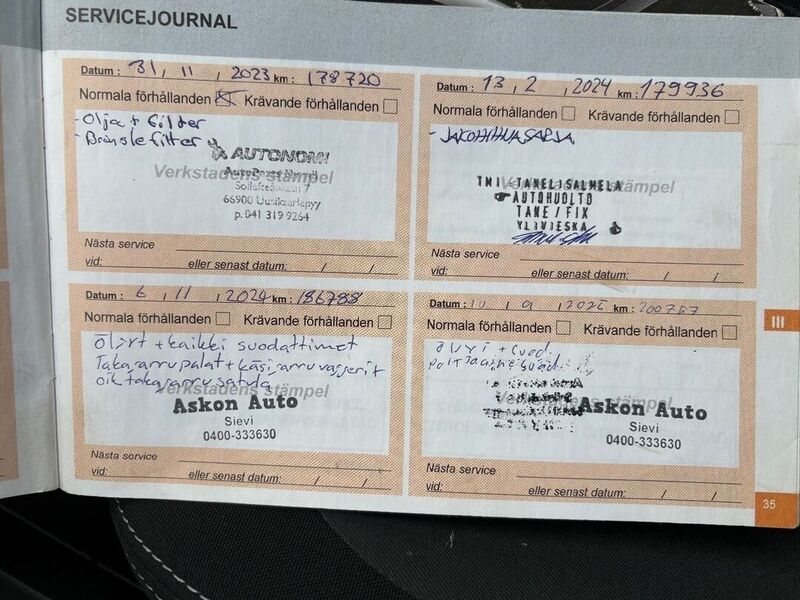 SERVICEJOURNAL
Datum : 31, 11, 2023 km : 178720
Normala förhållanden Krävande förhållanden
- Olja + filter
- Bränslefilter
AUTONOMI
Verkstadens stämpel
66900 Uusikaarlepyy
p. 041 319 9264
Nästa service
vid: eller senast datum: / /
Datum : 13, 2, 2024 km : 179936
Normala förhållanden Krävande förhållanden
- JAKOHIHNASARJA
Verkstadens stämpel
TMI TANELI SALMELA
AUTOHUOLTO
TAKE / FIX
YLIVIESKA
Nästa service
vid: eller senast datum: / /
Datum : 6, 11, 2024 km : 186788
Normala förhållanden Krävande förhållanden
Öljyt + kaikki suodattimet
Takajarrupalat + käsijarruvaijerit
oik takajarrusatula
Verkstadens stämpel
Askon Auto
Sievi
0400-333630
Nästa service
vid: eller senast datum: / /
Datum : 10, 9, km :
Normala förhållanden Krävande förhållanden
öljyt + suod
Verkstadens stämpel
Askon Auto
Sievi
0400-333630
Nästa service
vid: eller senast datum: / /
III
35